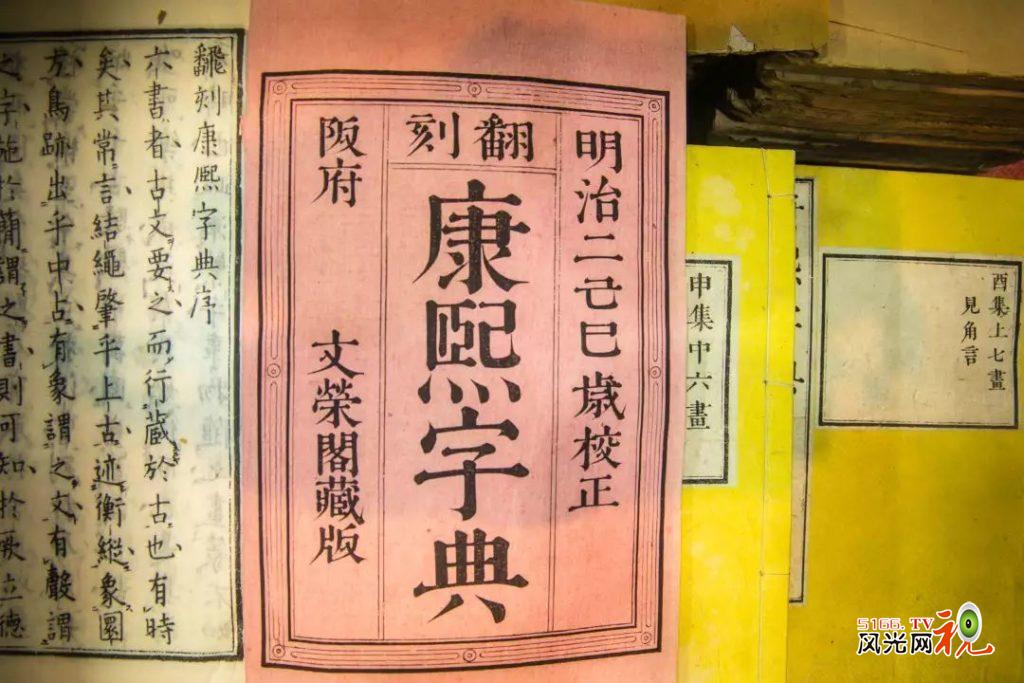 翻刻康熙字典序
六書者古文要之而行藏於古也有時
矣其常言結繩肇乎上古迹衡縱象圜
方鳥跡出乎中占有象謂之文有聲謂
之字施於簡謂之書則可知於厥立德
明治二己巳歲校正
翻刻
康熙字典
阪府
文榮閣藏版
申集中六畫
酉集上七畫
見角言
5166.TV
风光网视